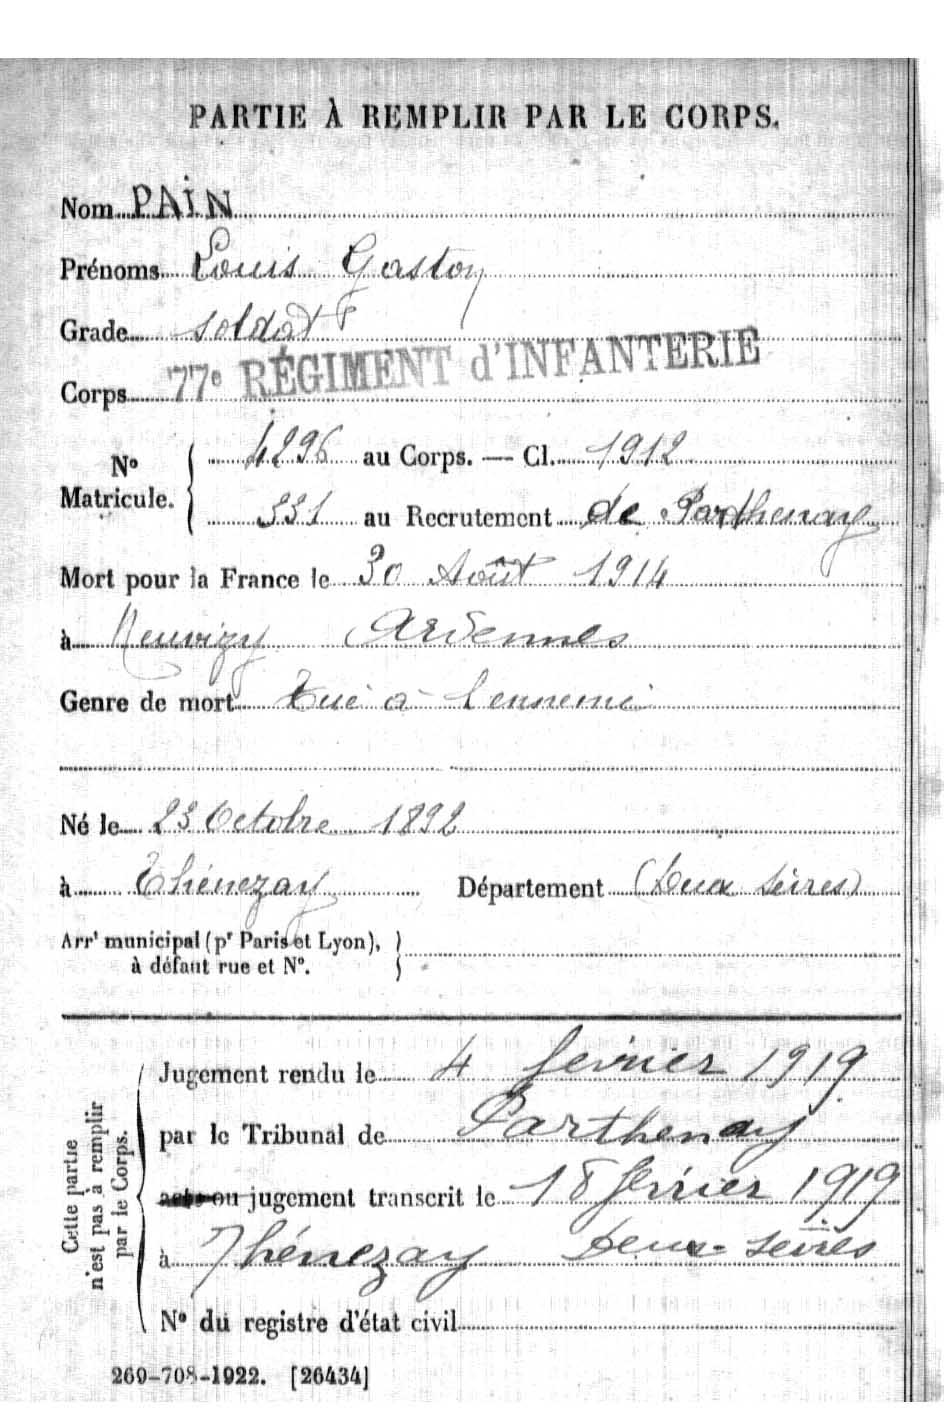 PARTIE À REMPLIR PAR LE CORPS.
Nom PAIN
Prénoms Louis Gaston
Grade soldat
Corps 77e RÉGIMENT d'INFANTERIE
No Matricule. 4296 au Corps. — Cl. 1912
331 au Recrutement de Parthenay
Mort pour la France le 30 Août 1914
à Neuvizy Ardennes
Genre de mort Tué à l'ennemi
Né le 23 Octobre 1892
à Thénezay Département (Deux Sèvres)
Arrt municipal (pr Paris et Lyon),
à défaut rue et No.
Cette partie
n'est pas à remplir
par le Corps.
Jugement rendu le 4 fevrier 1919.
par le Tribunal de Parthenay
acte ou jugement transcrit le 18 février 1919
à Thénezay Deux-Sèvres
No du registre d'état civil
269-708-1922. [26434]